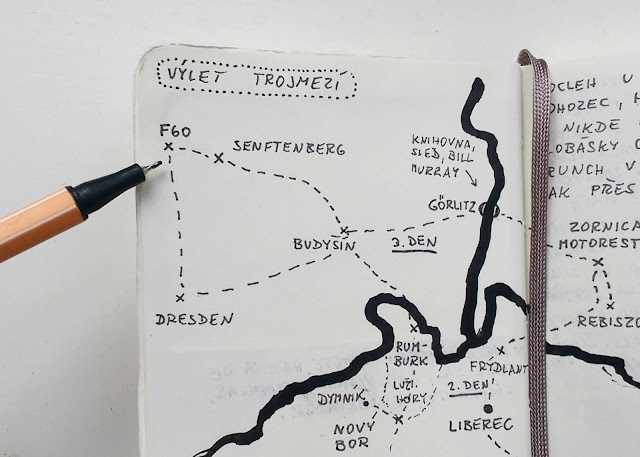 VÝLET TROJMEZÍ
F60
SENFTENBERG
KNIHOVNA,
SLEĎ, BILL
MURRAY
GÖRLITZ
BUDYSIN
3. DEN
DRESDEN
RUM-
BURK
LUŽI.
HORY
DYMNÍK
NOVÝ
BOR
FRÝDLANT
2. DEN
LIBEREC
OCLEH U
OHOZEC, H
NIKDE
LOBÁSKY
RUNCH V
AK PŘES
ZORNICA
MOTOREST
REBISZO